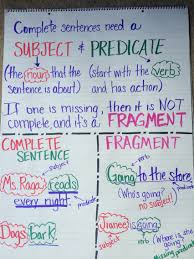 Complete sentences need a
SUBJECT & PREDICATE
(the noun that the (start with the verb
sentence is about) and has action)
If one is missing, then it is NOT
complete, and it's a FRAGMENT
COMPLETE
SENTENCE
subject
Ms. Raga reads
every night
predicate
Dogs bark.
subject
FRAGMENT
verb
Going to the store
(Who's going?
no subject!)
Jianee is going.
subject
verb
(Where is she going?
Missing predicate)